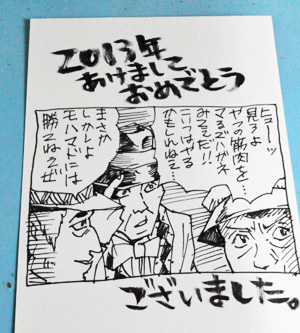 2013年
あけまして
おめでとう
ヒューッ
見ろよ
やつの筋肉を…
まるでハガネ
みてえだ!!
こいつはやる
かもしれねえ…
まさか
しかしよ
モハメドには
勝てねえぜ
ございました。